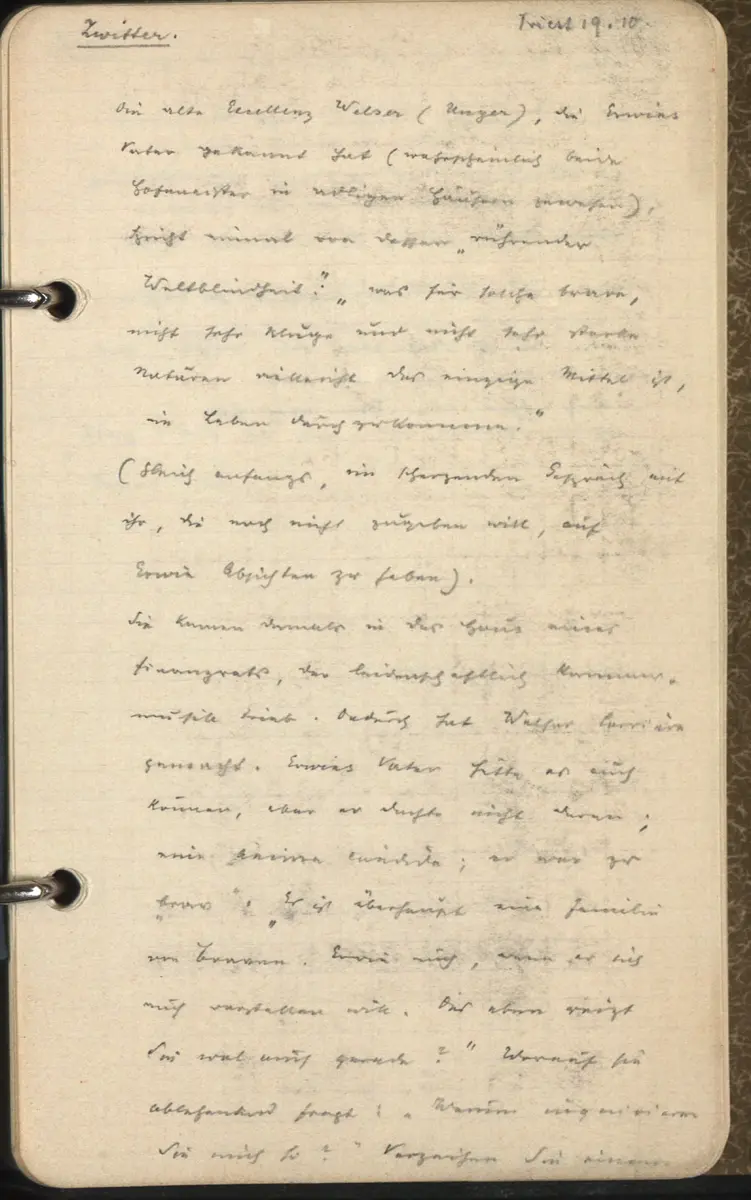 Zwitter.
Triest 19. 10.
Die alte Excellenz Welser (Unger), die Erwins
Vater gekannt hat (wahrscheinlich beide
Hofmeister in adligen Häusern gewesen),
spricht einmal von dessen „rührender
Weltblindheit": „was für solche brave,
nicht sehr kluge und nicht sehr starke
Naturen vielleicht das einzige Mittel ist,
im Leben durchzukommen."
(Gleich anfangs, im scherzenden Gespräch mit
ihr, die noch nicht zugeben will, auf
Erwin Absichten zu haben).
Sie kamen damals in das Haus eines
Finanzrats, der leidenschaftlich Kammer-
musik trieb. Dadurch hat Welser Carrière
gemacht. Erwins Vater hätte es auch
können, aber er dachte nicht daran;
eine anima candida; er war zu
„brav". „Es ist überhaupt eine Familie
von Braven. Erwin auch, wenn er sich
auch verstellen will. Das eben reizt
Sie wol auch gerade?" Worauf sie
ablehnend fragt: „Warum inquirieren
Sie mich so?" Verzeihen Sie einem